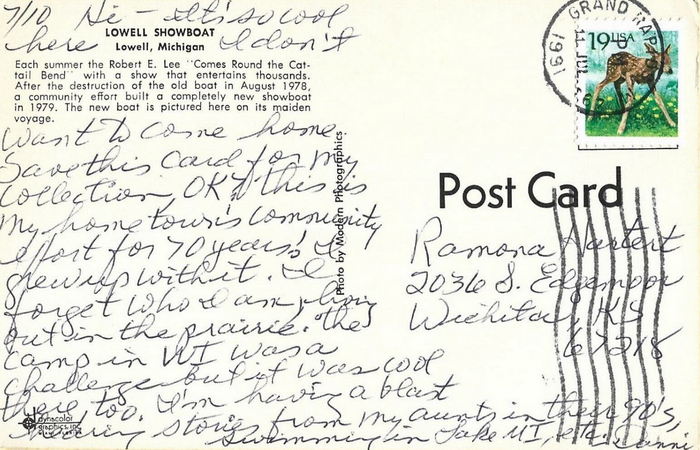 7/10 Hi - It's so cool
here I don't
LOWELL SHOWBOAT
Lowell, Michigan
Each summer the Robert E. Lee "Comes Round the Cat-
tail Bend" with a show that entertains thousands.
After the destruction of the old boat in August 1978,
a community effort built a completely new showboat
in 1979. The new boat is pictured here on its maiden
voyage.
want to come home.
Save this card for my
collection OK? this is
my hometown's community
effort for 70 years! I
grew up with it. I
forget who I am, living
out in the prairie. The
camp in WI was a
challenge but it was cool
there too. I'm having a blast
hearing stories from my aunts in their 90's,
swimming in Lake MI, etc.
Photo by Modern Photographics
dynacolor
graphics, inc.
GRAND RAP
1991
19 USA
Post Card
Ramona Hartert
2036 S. Edgemoor
Wichita, KS
67218